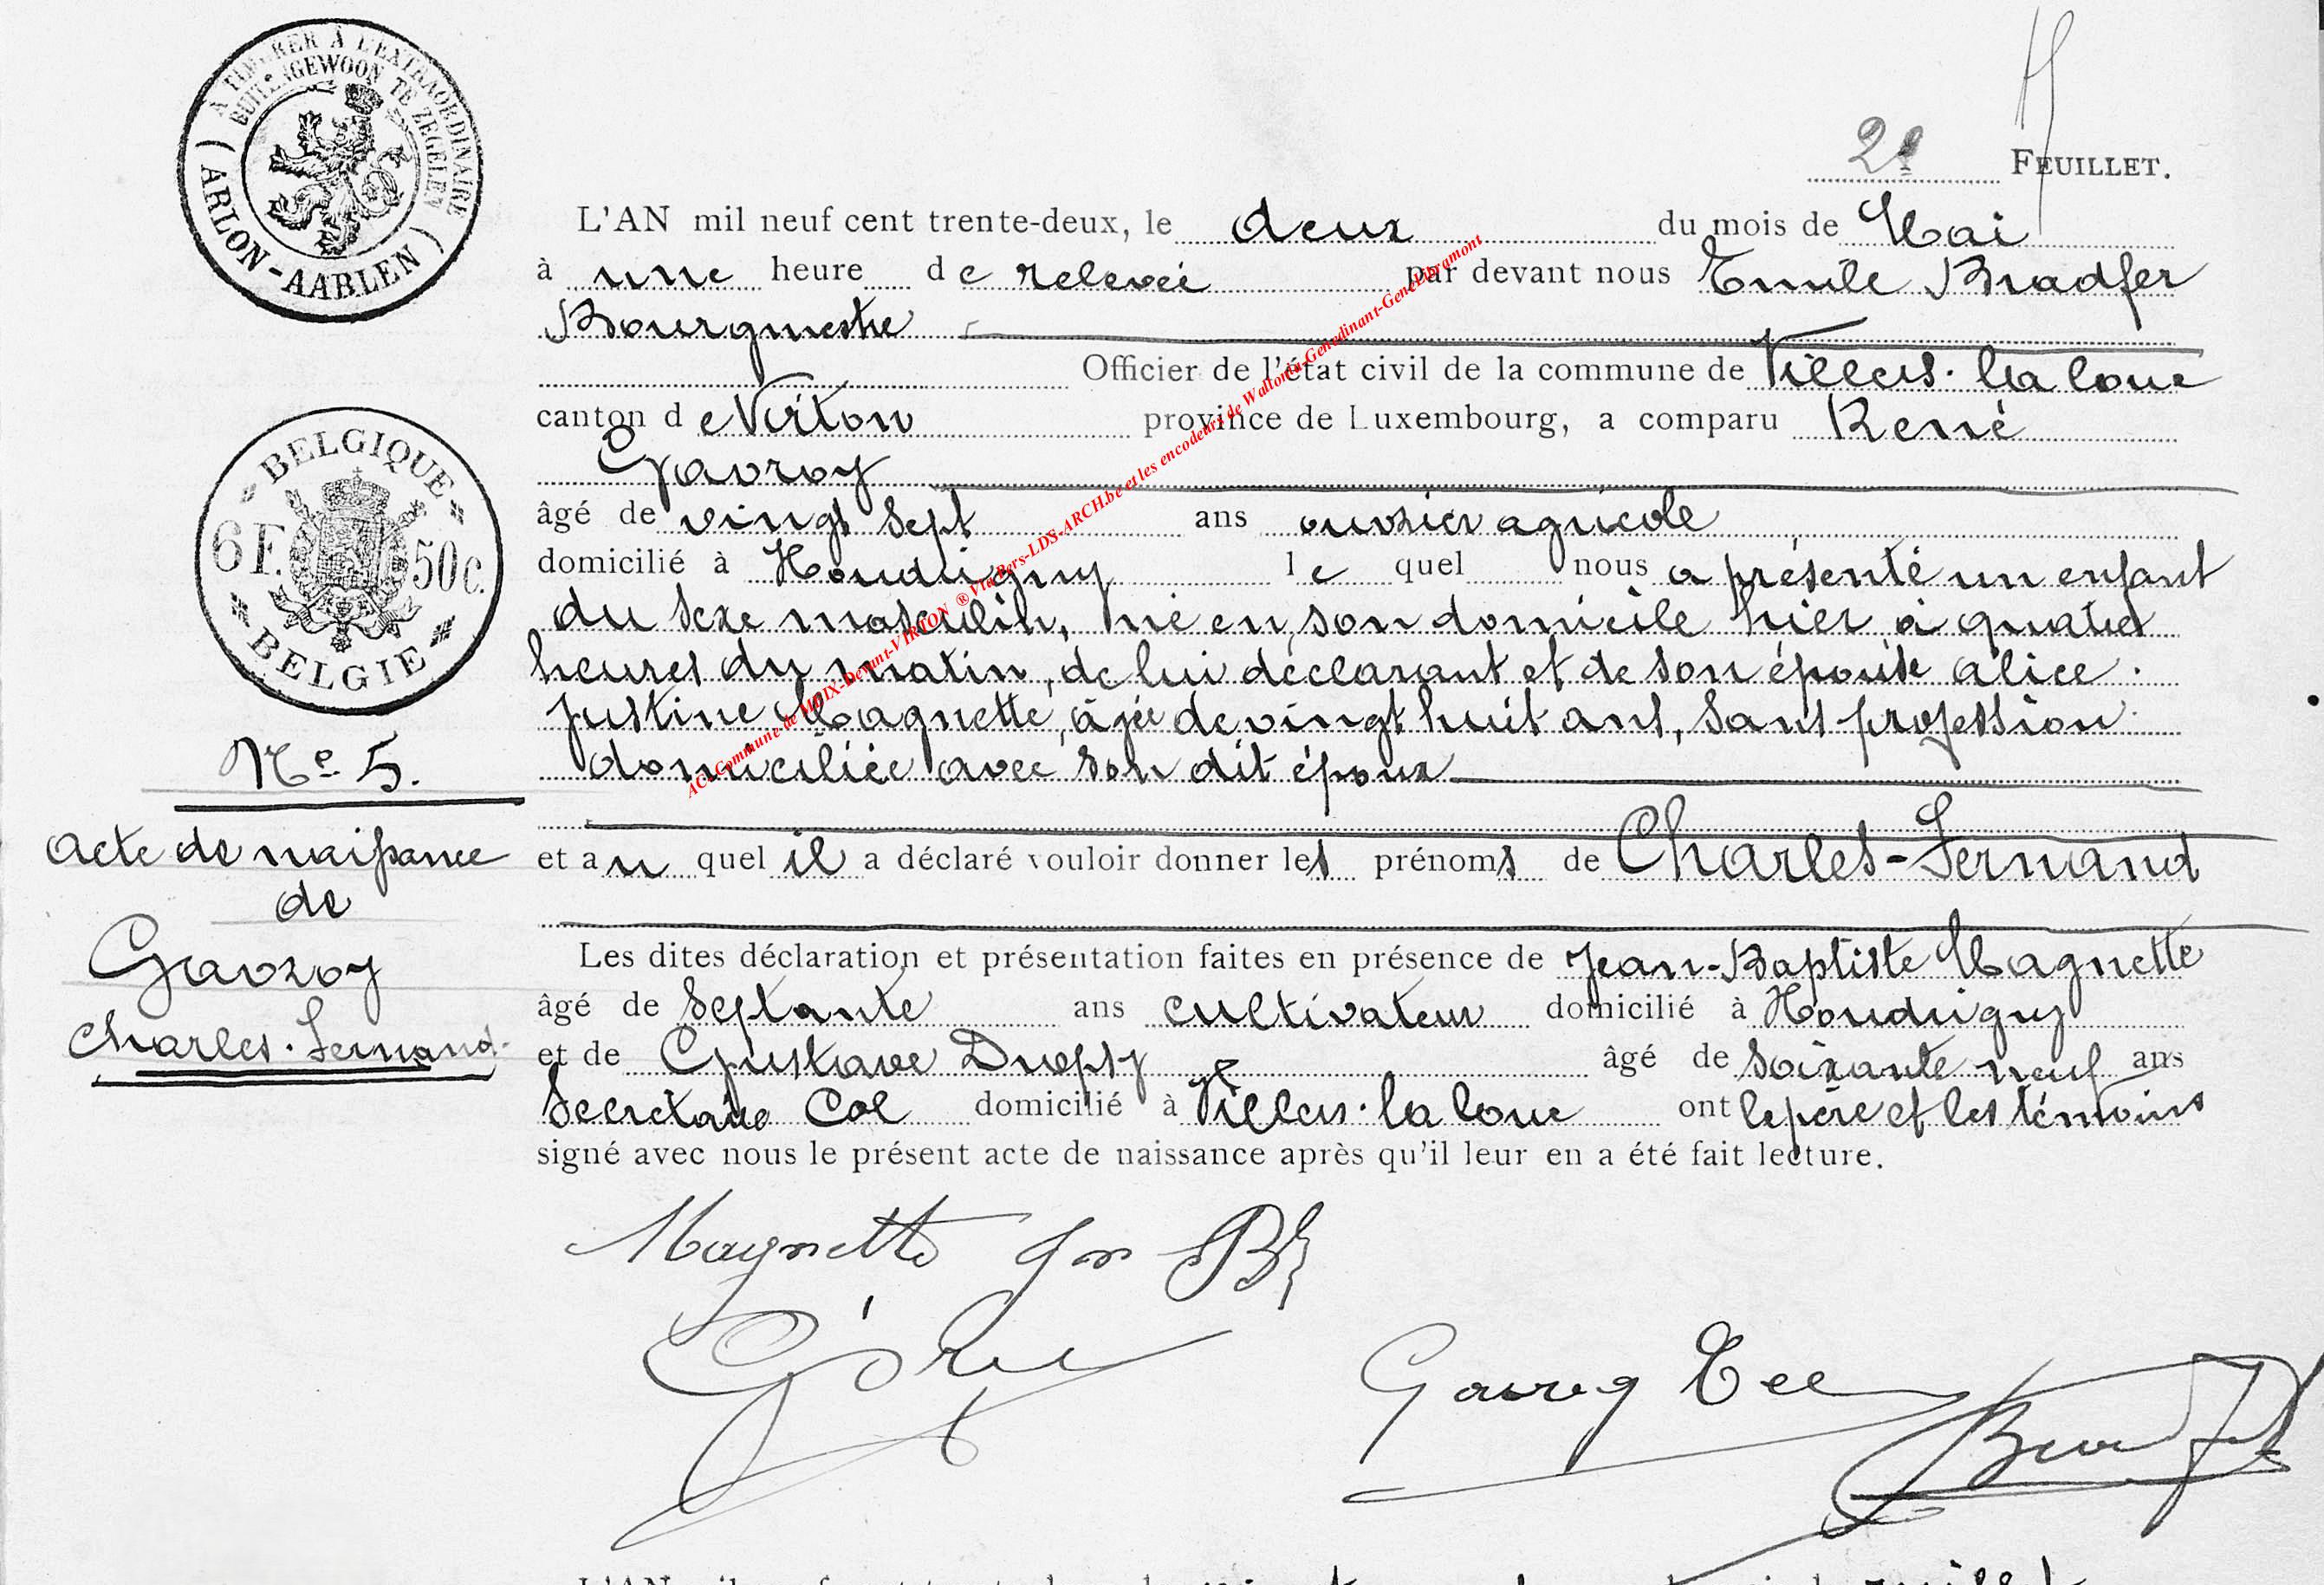 A TIMBRER A L'EXTRAORDINAIRE
BUITENGEWOON TE ZEGELEN
( ARLON-AARLEN )
2e FEUILLET.
L'AN mil neuf cent trente-deux, le deux du mois de Mai
à une heure de relevée par devant nous Emile Bradfer
Bourgmestre
Officier de l'état civil de la commune de Villers-la loue
canton de Virton province de Luxembourg, a comparu René
Gavroy
âgé de vingt sept ans ouvrier agricole
domicilié à Houdrigny le quel nous a présenté un enfant
du sexe masculin, né en son domicile hier à quatre
heures du matin, de lui déclarant et de son épouse Alice
Justine Magnette, âgée de vingt huit ans, sans profession
domiciliée avec son dit époux
et au quel il a déclaré vouloir donner les prénoms de Charles-Fernand
Les dites déclaration et présentation faites en présence de Jean-Baptiste Magnette
âgé de septante ans cultivateur domicilié à Houdrigny
et de Gustave Dropsy âgé de soixante neuf ans
Secrétaire Cal domicilié à Villers-la loue ont le père et les témoins
signé avec nous le présent acte de naissance après qu'il leur en a été fait lecture.
BELGIQUE
6F. 50c.
BELGIE
No 5.
Acte de naissance
de
Gavroy
Charles-Fernand
AC-Commune de MEIX-Devant-VIRTON ® Via Pers-LDS-ARCH.be et les encodeurs de Wallonia-Genedinant-GeneLibramont
Magnette Jn Bte
Gavroy
Bradfer